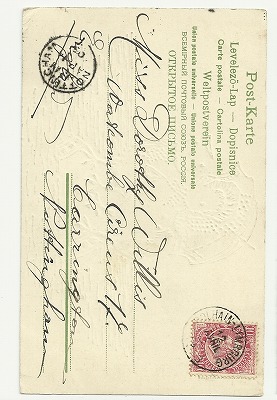 Post-Karte
Levelező-Lap — Dopisnice
Carte postale — Cartolina postale
Weltpostverein
Union postale universelle Unione postale universale
ВСЕМІРНЫЙ ПОЧТОВЫЙ СОЮЗЪ. РОССІЯ.
ОТКРЫТОЕ ПИСЬМО.
Miss Dorothy Willis
Carrington
Nottingham
NOTTINGHAM